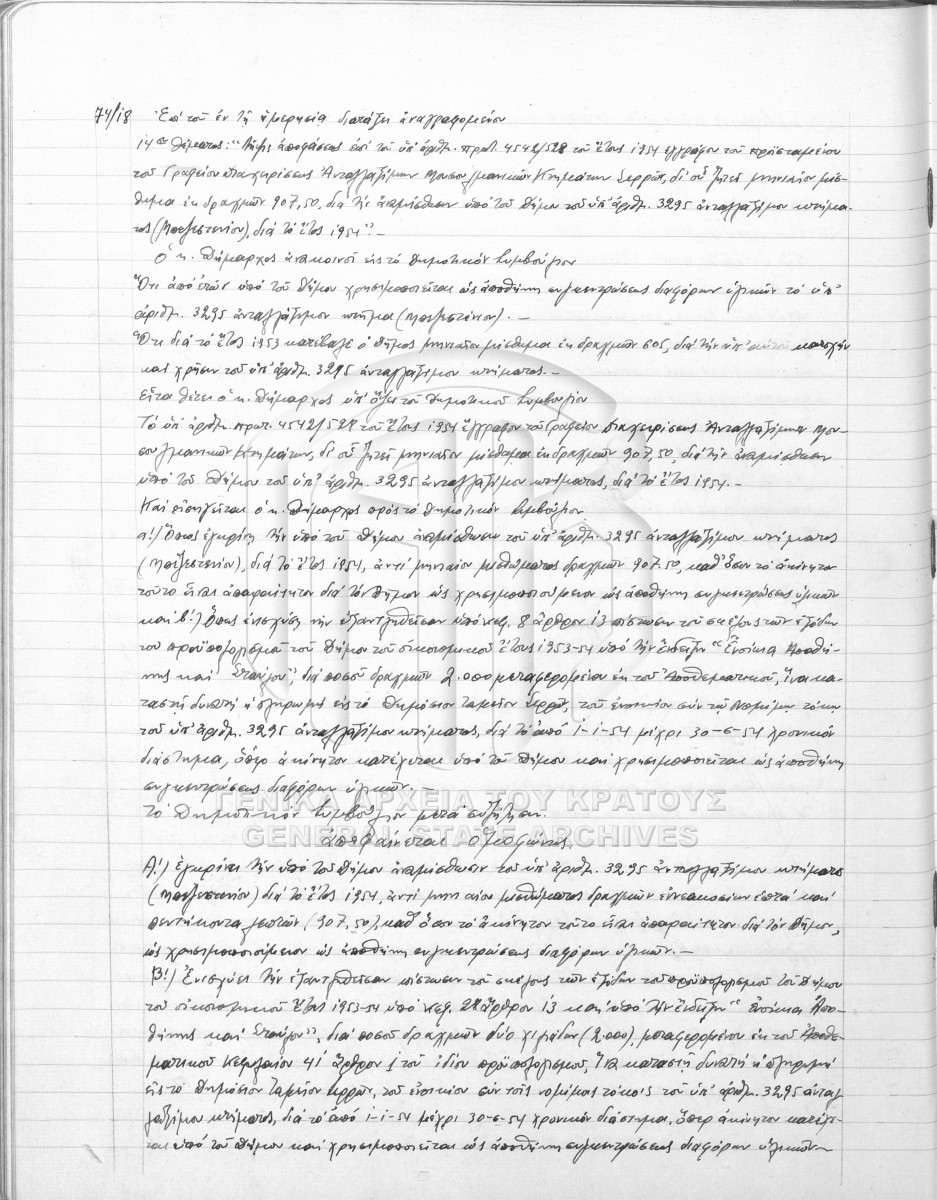 74/18 Ἐπὶ τοῦ ἐν τῇ ἡμερησίᾳ διατάξει ἀναγραφομένου
14ου θέματος: "Λῆψις ἀποφάσεως ἐπὶ τοῦ ὑπ' ἀριθμ. πρωτ. 4542/528 τοῦ ἔτους 1954 ἐγγράφου τοῦ προϊσταμένου
τοῦ Γραφείου Διαχειρίσεως Ἀνταλλαξίμων Μουσουλμανικῶν Κτημάτων Σερρῶν, δι' οὗ ζητεῖ μηνιαῖον μίσ-
θωμα ἐκ δραχμῶν 907,50, διὰ τὴν ἐκμίσθωσιν ὑπὸ τοῦ Δήμου τοῦ ὑπ' ἀριθμ. 3295 ἀνταλλαξίμου κτήμα-
τος (Μπεζεστενίου), διὰ τὸ ἔτος 1954". –
Ὁ κ. Δήμαρχος ἀνακοινοῖ εἰς τὸ Δημοτικὸν Συμβούλιον
Ὅτι ἀπὸ ἐτῶν ὑπὸ τοῦ Δήμου χρησιμοποιεῖται ὡς ἀποθήκη συγκεντρώσεως διαφόρων ὑλικῶν τὸ ὑπ'
ἀριθμ. 3295 ἀνταλλάξιμον κτῆμα (Μπεζεστένιον). –
Ὅτι διὰ τὸ ἔτος 1953 κατέβαλε ὁ Δῆμος μηνιαῖον μίσθωμα ἐκ δραχμῶν 605, διὰ τὴν ὑπ' αὐτοῦ κατοχὴν
καὶ χρῆσιν τοῦ ὑπ' ἀριθμ. 3295 ἀνταλλαξίμου κτήματος. –
Εἶτα θέτει ὁ κ. Δήμαρχος ὑπ' ὄψει τοῦ Δημοτικοῦ Συμβουλίου
Τὸ ὑπ' ἀριθμ. πρωτ. 4542/528 τοῦ ἔτους 1954 ἔγγραφον τοῦ Γραφείου Διαχειρίσεως Ἀνταλλαξίμων Μου-
σουλμανικῶν Κτημάτων, δι' οὗ ζητεῖ μηνιαῖον μίσθωμα ἐκ δραχμῶν 907,50, διὰ τὴν ἐκμίσθωσιν
ὑπὸ τοῦ Δήμου τοῦ ὑπ' ἀριθμ. 3295 ἀνταλλαξίμου κτήματος, διὰ τὸ ἔτος 1954. –
Καὶ εἰσηγεῖται ὁ κ. Δήμαρχος πρὸς τὸ Δημοτικὸν Συμβούλιον
α!) Ὅπως ἐγκρίνῃ τὴν ὑπὸ τοῦ Δήμου ἐκμίσθωσιν τοῦ ὑπ' ἀριθμ. 3295 ἀνταλλαξίμου κτήματος
(Μπεζεστενίου), διὰ τὸ ἔτος 1954, ἀντὶ μηνιαίου μισθώματος δραχμῶν 907.50, καθ' ὅσον τὸ ἀκίνητον
τοῦτο εἶναι ἀπαραίτητον διὰ τὸν Δῆμον ὡς χρησιμοποιούμενον ὡς ἀποθήκη συγκεντρώσεως ὑλικῶν
καὶ β!) Ὅπως ἐνισχύσῃ τὴν ἐξαντληθεῖσαν ὑπὸ κεφ. 8 ἄρθρον 13 πίστωσιν τοῦ σκέλους τῶν ἐξόδων
τοῦ προϋπολογισμοῦ τοῦ Δήμου τοῦ οἰκονομικοῦ ἔτους 1953-54 ὑπὸ τὴν ἔνδειξιν "Ἐνοίκια Ἀποθή-
κης καὶ Σταύλου", διὰ ποσοῦ δραχμῶν 2.000 μεταφερομένου ἐκ τοῦ Ἀποθεματικοῦ, ἵνα κα-
ταστῇ δυνατὴ ἡ πληρωμὴ εἰς τὸ Δημόσιον Ταμεῖον Σερρῶν, τοῦ ἐνοικίου σὺν τῷ Νομίμῳ τόκῳ
τοῦ ὑπ' ἀριθμ. 3295 ἀνταλλαξίμου κτήματος, διὰ τὸ ἀπὸ 1-1-54 μέχρι 30-6-54 χρονικὸν
διάστημα, ὅπερ ἀκίνητον κατέχεται ὑπὸ τοῦ Δήμου καὶ χρησιμοποιεῖται ὡς ἀποθήκη
συγκεντρώσεως διαφόρων ὑλικῶν. –
Τὸ Δημοτικὸν Συμβούλιον μετὰ συζήτησιν
ἀποφαίνεται ὁμοφώνως
Α!) Ἐγκρίνει τὴν ὑπὸ τοῦ Δήμου ἐκμίσθωσιν τοῦ ὑπ' ἀριθμ. 3295 ἀνταλλαξίμου κτήματος
(Μπεζεστενίου) διὰ τὸ ἔτος 1954, ἀντὶ μηνιαίου μισθώματος δραχμῶν ἐννεακοσίων ἑπτὰ καὶ
πεντήκοντα λεπτῶν (907,50), καθ' ὅσον τὸ ἀκίνητον τοῦτο εἶναι ἀπαραίτητον διὰ τὸν Δῆμον,
ὡς χρησιμοποιούμενον ὡς ἀποθήκη συγκεντρώσεως διαφόρων ὑλικῶν. –
Β!) Ἐνισχύει τὴν ἐξαντληθεῖσαν πίστωσιν τοῦ σκέλους τῶν ἐξόδων τοῦ προϋπολογισμοῦ τοῦ Δήμου
τοῦ οἰκονομικοῦ ἔτους 1953-54 ὑπὸ κεφ. ἄρθρον 13 καὶ ὑπὸ τὴν ἔνδειξιν "Ἐνοίκια Ἀπο-
θήκης καὶ Σταύλου", διὰ ποσοῦ δραχμῶν δύο χιλιάδων (2.000), μεταφερομένου ἐκ τοῦ Ἀποθε-
ματικοῦ κεφαλαίου 41 ἄρθρον 1 τοῦ ἰδίου προϋπολογισμοῦ, ἵνα καταστῇ δυνατὴ ἡ πληρωμὴ
εἰς τὸ Δημόσιον Ταμεῖον Σερρῶν, τοῦ ἐνοικίου σὺν τοῖς νομίμοις τόκοις τοῦ ὑπ' ἀριθμ. 3295 ἀνταλ
λαξίμου κτήματος, διὰ τὸ ἀπὸ 1-1-54 μέχρι 30-6-54 χρονικὸν διάστημα, ὅπερ ἀκίνητον κατέχε-
ται ὑπὸ τοῦ Δήμου καὶ χρησιμοποιεῖται ὡς ἀποθήκη συγκεντρώσεως διαφόρων ὑλικῶν –
ΓΕΝΙΚΑ ΑΡΧΕΙΑ ΤΟΥ ΚΡΑΤΟΥΣ
GENERAL STATE ARCHIVES